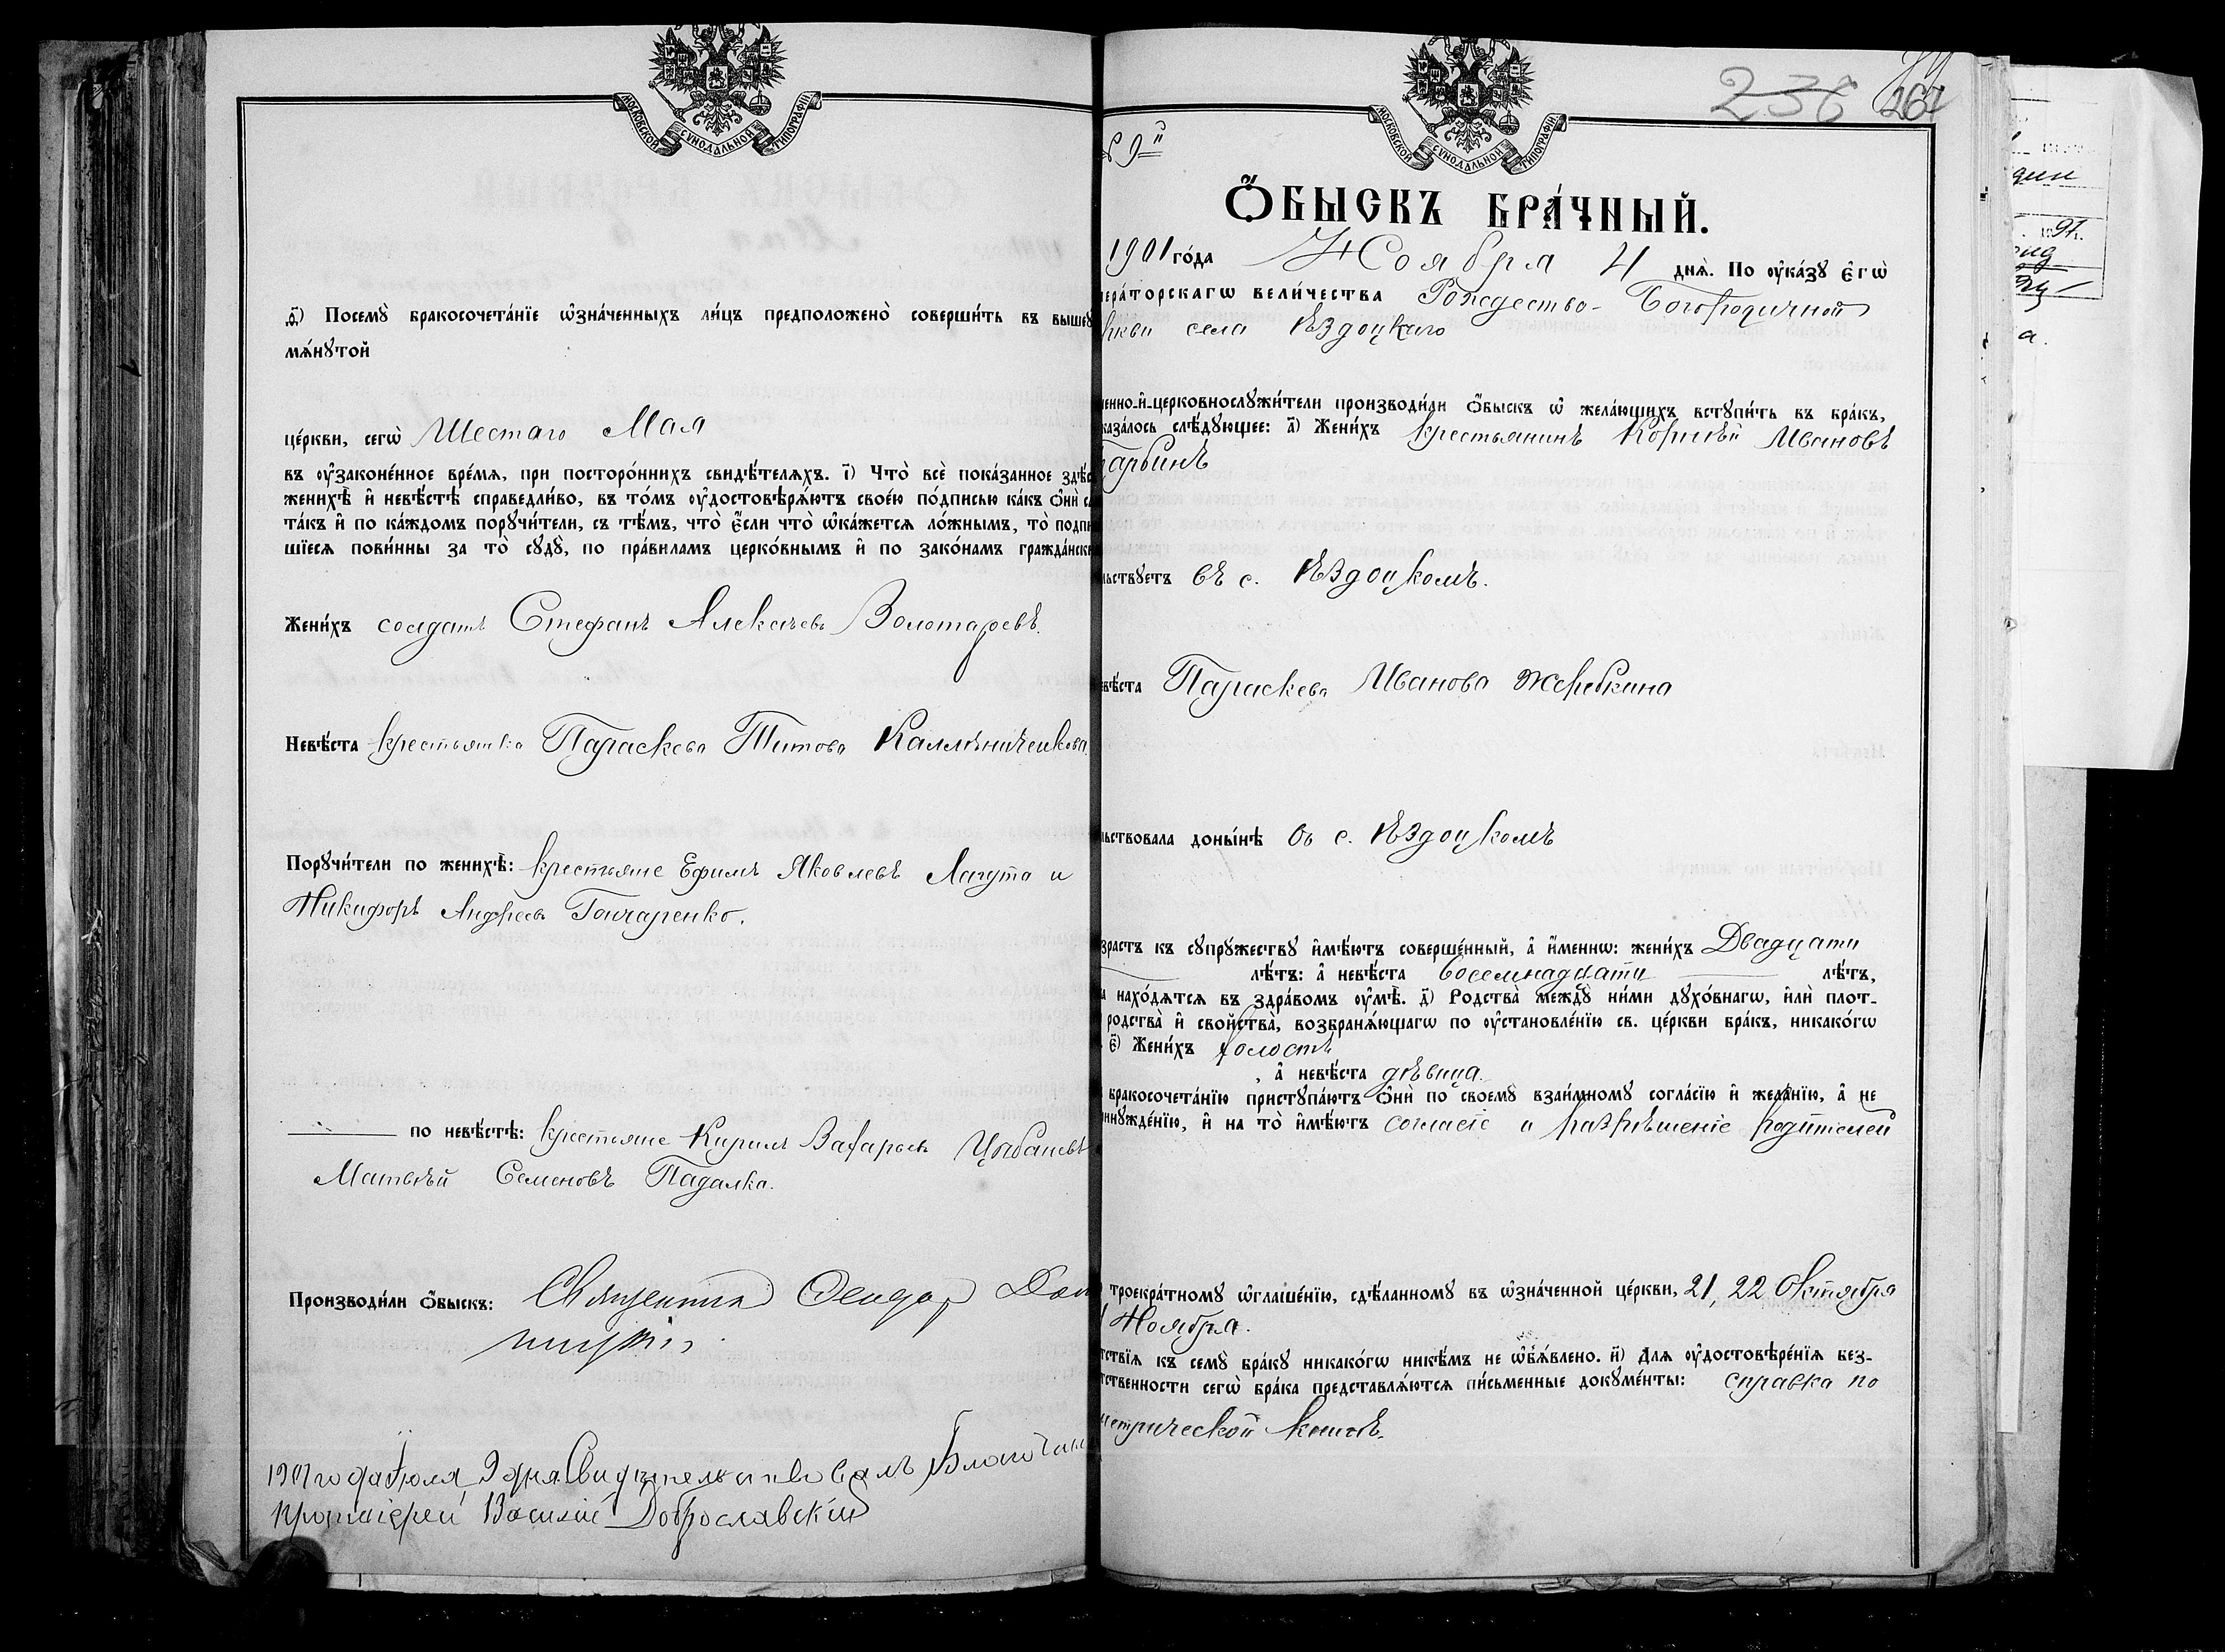 МОСКОВСКОЙ СУНОДАЛЬНОЙ ТИПОГРАФІИ
Ѳ҃) Посемꙋ̀ бракосочета́нїе ѡ҆зна́ченныхъ ли́цъ предположено̀ соверши́ть въ вышеꙋ
мѧ́нꙋтой
це́ркви, сегѡ̀ Шестаго Мая
въ ᲂу҆законе́нное вре́мѧ, при посторо́ннихъ свидѣ́телѧхъ. і҃) Что̀ всѐ пока́занное здѣс
женихѣ̀ и҆ невѣ́стѣ справедли́во, въ то́мъ ᲂу҆достовѣрѧ́ютъ свое́ю по́дписью ка́къ ѻ҆нѝ с
та́къ и҆ по ка́ждомъ порꙋчи́тели, съ тѣ́мъ, что̀ є҆́сли что̀ ѡ҆ка́жетсѧ ло́жнымъ, то̀ подпи
шїесѧ пови́нны за то̀ сꙋдꙋ̀, по пра́виламъ церко́внымъ и҆ по зако́намъ гражда́нск
Жени́хъ солдатъ Стефанъ Алексѣевъ Золотаревъ.
Невѣ́ста крестьянка Параскева Титова Калмыниченкова.
Порꙋчи́тели по женихѣ̀: крестьяне Ефимъ Яковлевъ Лагута и
Никифоръ Андреевъ Гончаренко.
по невѣ́стѣ: крестьяне Кирилъ Захарьевъ Цыбаневъ
Матвѣй Семеновъ Падалка.
Производи́ли ѻ҆́быскъ: Священникъ Ѳеодоръ
1901 года Іюля 9 дня Свидѣтельствовалъ Благочин
протоіерей Василій Доброславскій
МОСКОВСКОЙ СУНОДАЛЬНОЙ ТИПОГРАФІИ
236 267
№ 9й
Ѻ҆́БЫСКЪ БРА́ЧНЫЙ.
1901 го́да Ноября 4 днѧ̀. По ᲂу҆ка́зꙋ є҆гѡ̀
ера́торскагѡ вели́чества Рождество-Богородичной
ркви села Ѣздоцкаго
енно-и҆-церковнослꙋжи́тели производи́ли ѻ҆́быскъ ѡ҆ жела́ющихъ встꙋпи́ть въ бра́къ,
каза́лось слѣ́дꙋющее: а҃) Жени́хъ крестьянинъ Корнѣй Ивановъ
арвинъ
льствꙋетъ въ с. Ѣздоцкомъ.
вѣ́ста Параскева Иванова Жеребкина
льствовала доны́нѣ въ с. Ѣздоцкомъ
зрастъ къ сꙋпрꙋ́жествꙋ и҆мѣ́ютъ соверше́нный, а҆ и҆́меннѡ: жени́хъ Двадцати
лѣ́тъ: а҆ невѣ́ста восемнадцати лѣ́тъ,
а нахо́дѧтсѧ въ здра́вомъ ᲂу҆мѣ̀. д҃) Родства̀ междꙋ̀ ни́ми дꙋхо́внагѡ, и҆лѝ плот-
родства̀ и҆ сво́йства̀, возбранѧ́ющагѡ по ᲂу҆становле́нїю св. це́ркви бра́къ, никако́гѡ
є҃) Жени́хъ холостъ
, а҆ невѣ́ста дѣвица.
бракосочета́нїю пристꙋпа́ютъ ѻ҆нѝ по своемꙋ̀ взаи́мномꙋ согла́сїю и҆ жела́нїю, а҆ не
инꙋжде́нїю, и҆ на то̀ и҆мѣ́ютъ согласіе и разрѣшеніе родителей
троекра́тномꙋ ѡ҆глаше́нїю, сдѣ́ланномꙋ въ ѡ҆зна́ченной це́ркви, 21, 22 Октября
Ноября.
тствїѧ къ семꙋ̀ бра́кꙋ никако́гѡ никѣ́мъ не ѡ҆б̾ѧ́влено. и҃) Длѧ ᲂу҆достовѣре́нїѧ без-
тственности сегѡ̀ бра́ка представлѧ́ютсѧ пи́сьменные докꙋме́нты: справка по
метрической книгѣ.